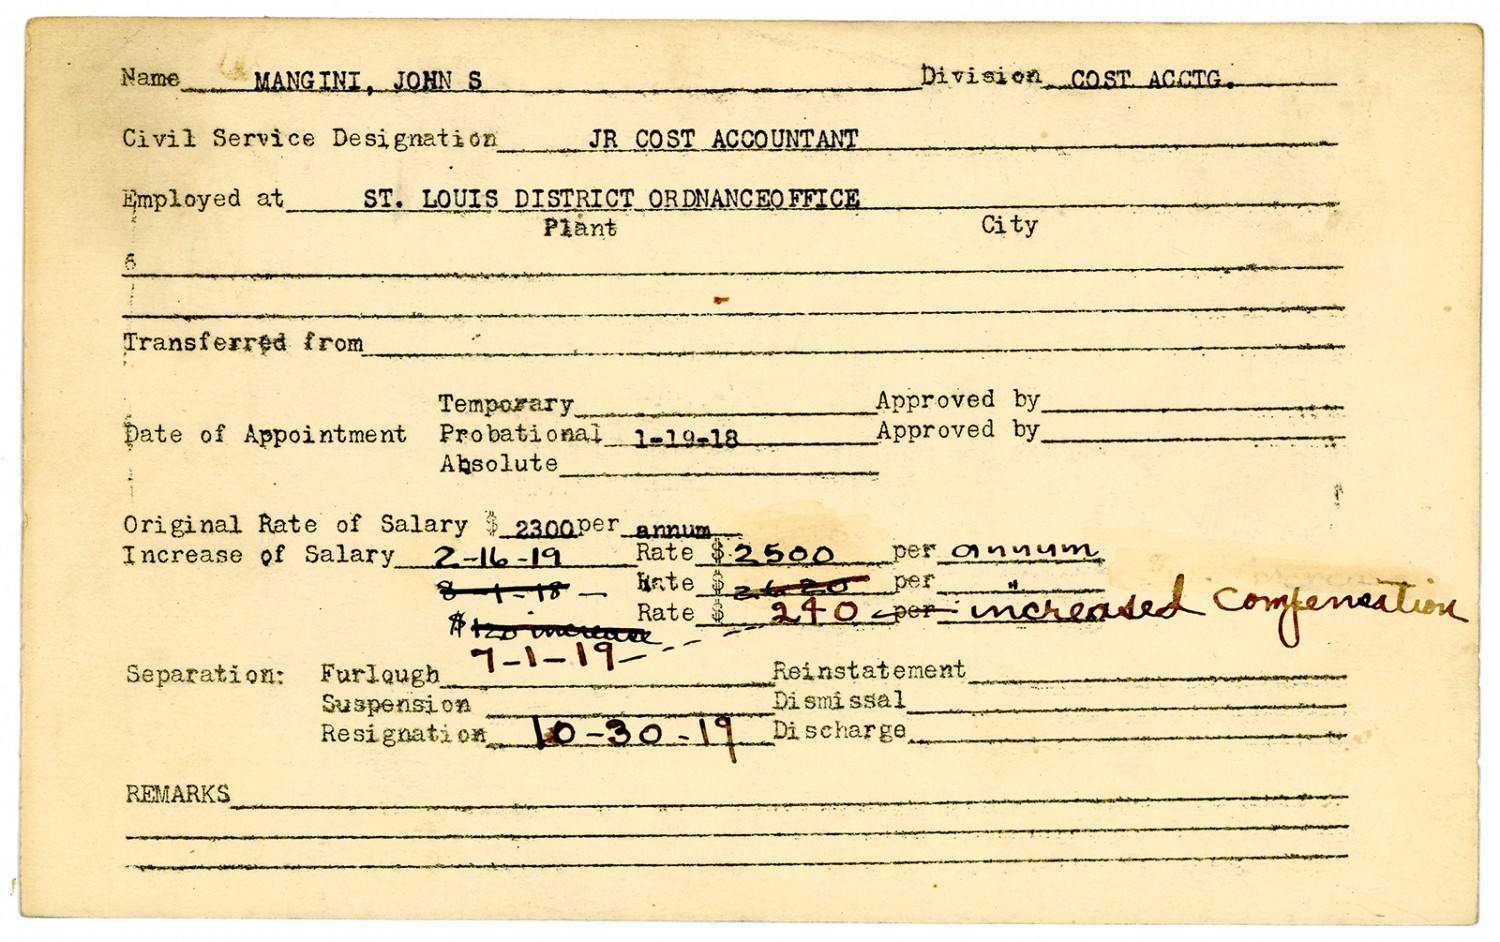 Name MANGINI, JOHN S Division COST ACCTG.
Civil Service Designation JR COST ACCOUNTANT
Employed at ST. LOUIS DISTRICT ORDNANCEOFFICE
Plant City
6
Transferred from
Temporary Approved by
Date of Appointment Probational 1-19-18 Approved by
Absolute
Original Rate of Salary $ 2300 per annum
Increase of Salary 2-16-19 Rate $ 2500 per annum
8-1-18 - Rate $ 2620 per "
Rate $ 240 per increased compensation
$ 120 increase
7-1-19
Separation: Furlough Reinstatement
Suspension Dismissal
Resignation 10-30-19 Discharge
REMARKS